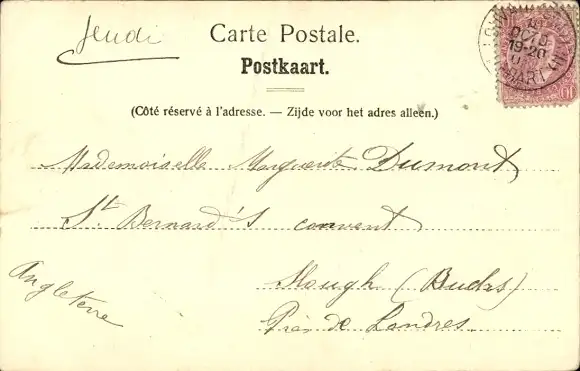 Jeudi
Carte Postale.
Postkaart.
(Côté réservé à l'adresse. — Zijde voor het adres alleen.)
Mademoiselle Marguerite Dumont
St Bernard's convent
Angleterre
Slough (Bucks)
Près de Londres.
OCTO
19-20
10